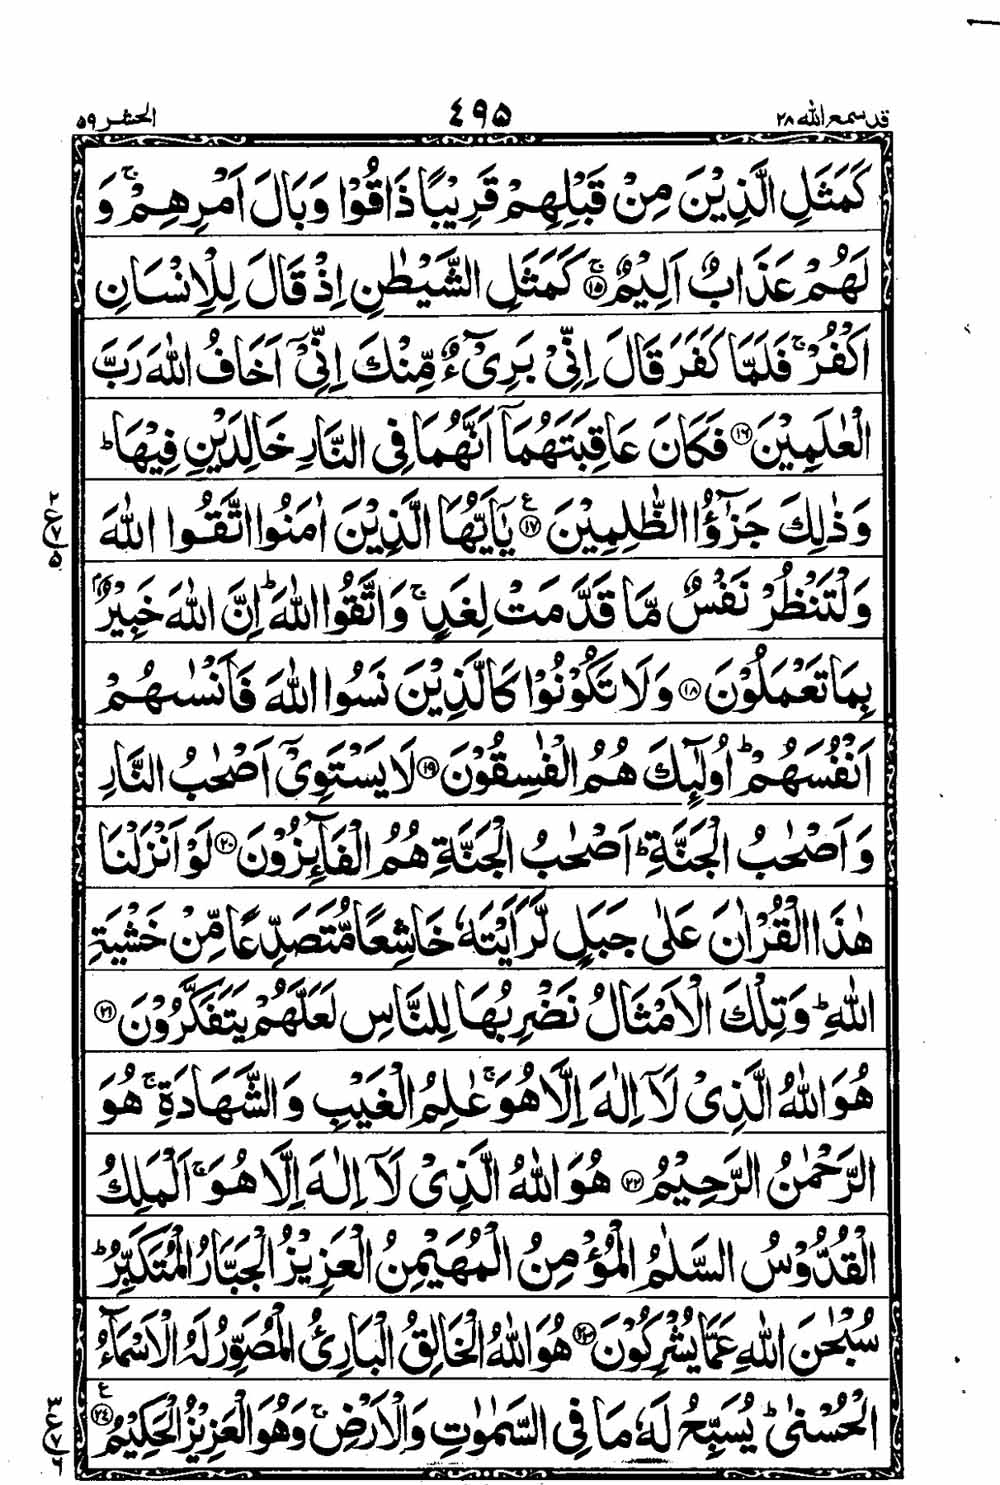 قد سمع الله ٢٨
٤٩٥
الحشر ٥٩
كَمَثَلِ الَّذِيْنَ مِنْ قَبْلِهِمْ قَرِيْبًا ذَاقُوْا وَبَالَ اَمْرِهِمْ ۚ وَ
لَهُمْ عَذَابٌ اَلِيْمٌ ۚ﴿١٥﴾ كَمَثَلِ الشَّيْطٰنِ اِذْ قَالَ لِلْاِنْسَانِ
اكْفُرْ ۚ فَلَمَّا كَفَرَ قَالَ اِنِّيْ بَرِيْٓءٌ مِّنْكَ اِنِّيْٓ اَخَافُ اللّٰهَ رَبَّ
الْعٰلَمِيْنَ ﴿١٦﴾ فَكَانَ عَاقِبَتَهُمَآ اَنَّهُمَا فِي النَّارِ خَالِدَيْنِ فِيْهَا ؕ
وَذٰلِكَ جَزٰٓؤُا الظّٰلِمِيْنَ ﴿١٧﴾ ع يٰٓاَيُّهَا الَّذِيْنَ اٰمَنُوا اتَّقُوا اللّٰهَ
٢
ع
٧
٥
وَلْتَنْظُرْ نَفْسٌ مَّا قَدَّمَتْ لِغَدٍ ۚ وَاتَّقُوا اللّٰهَ ؕ اِنَّ اللّٰهَ خَبِيْرٌۢ
بِمَا تَعْمَلُوْنَ ﴿١٨﴾ وَلَا تَكُوْنُوْا كَالَّذِيْنَ نَسُوا اللّٰهَ فَاَنْسٰىهُمْ
اَنْفُسَهُمْ ؕ اُولٰٓئِكَ هُمُ الْفٰسِقُوْنَ ﴿١٩﴾ لَا يَسْتَوِيْٓ اَصْحٰبُ النَّارِ
وَاَصْحٰبُ الْجَنَّةِ ؕ اَصْحٰبُ الْجَنَّةِ هُمُ الْفَآئِزُوْنَ ﴿٢٠﴾ لَوْ اَنْزَلْنَا
هٰذَا الْقُرْاٰنَ عَلٰى جَبَلٍ لَّرَاَيْتَهٗ خَاشِعًا مُّتَصَدِّعًا مِّنْ خَشْيَةِ
اللّٰهِ ؕ وَتِلْكَ الْاَمْثَالُ نَضْرِبُهَا لِلنَّاسِ لَعَلَّهُمْ يَتَفَكَّرُوْنَ ﴿٢١﴾
هُوَ اللّٰهُ الَّذِيْ لَآ اِلٰهَ اِلَّا هُوَ ۚ عٰلِمُ الْغَيْبِ وَالشَّهَادَةِ ۚ هُوَ
الرَّحْمٰنُ الرَّحِيْمُ ﴿٢٢﴾ هُوَ اللّٰهُ الَّذِيْ لَآ اِلٰهَ اِلَّا هُوَ ۚ اَلْمَلِكُ
الْقُدُّوْسُ السَّلٰمُ الْمُؤْمِنُ الْمُهَيْمِنُ الْعَزِيْزُ الْجَبَّارُ الْمُتَكَبِّرُ ؕ
سُبْحٰنَ اللّٰهِ عَمَّا يُشْرِكُوْنَ ﴿٢٣﴾ هُوَ اللّٰهُ الْخَالِقُ الْبَارِئُ الْمُصَوِّرُ لَهُ الْاَسْمَآءُ
الْحُسْنٰى ؕ يُسَبِّحُ لَهٗ مَا فِي السَّمٰوٰتِ وَالْاَرْضِ ۚ وَهُوَ الْعَزِيْزُ الْحَكِيْمُ ﴿٢٤﴾ ع
٣
ع
٧
٦